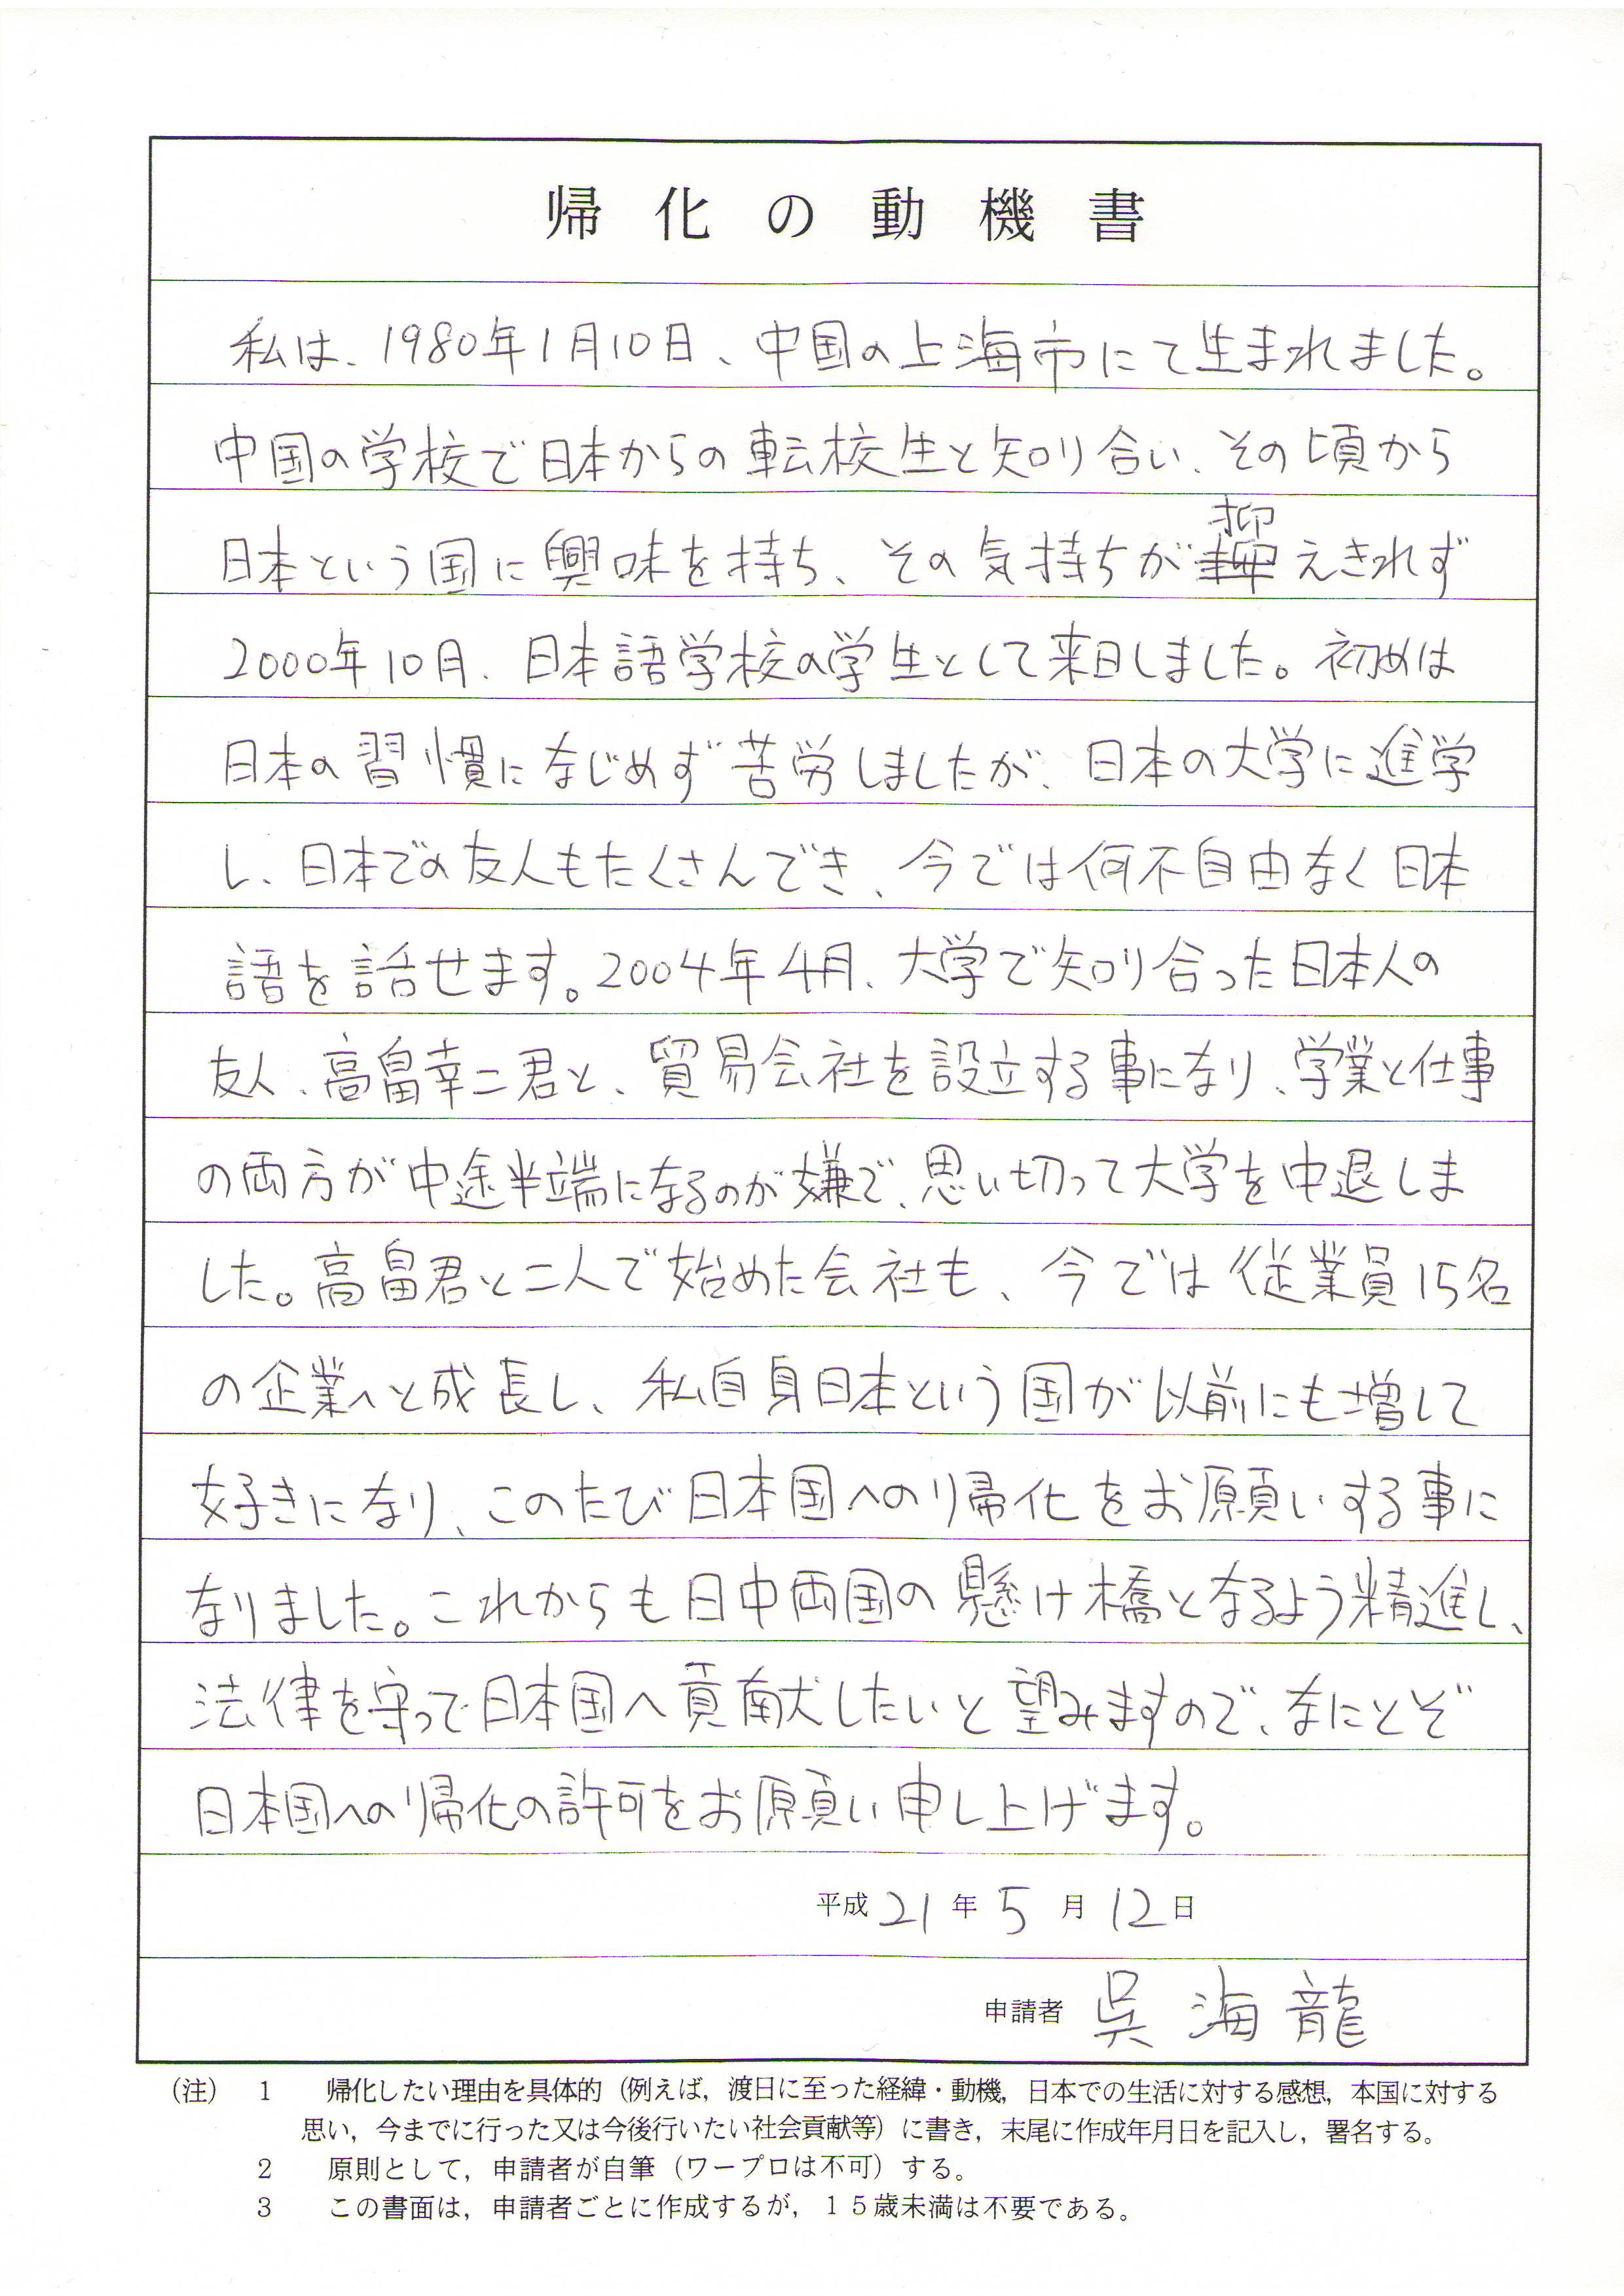 帰化の動機書
私は、1980年1月10日、中国の上海市にて生まれました。
中国の学校で日本からの転校生と知り合い、その頃から
日本という国に興味を持ち、その気持ちが抑えきれず
2000年10月、日本語学校の学生として来日しました。初めは
日本の習慣になじめず苦労しましたが、日本の大学に進学
し、日本での友人もたくさんでき、今では何不自由なく日本
語を話せます。2004年4月、大学で知り合った日本人の
友人、高畠幸二君と、貿易会社を設立する事になり、学業と仕事
の両方が中途半端になるのが嫌で、思い切って大学を中退しま
した。高畠君と二人で始めた会社も、今では従業員15名
の企業へと成長し、私自身日本という国が以前にも増して
好きになり、このたび日本国への帰化をお願いする事に
なりました。これからも日中両国の懸け橋となるよう精進し、
法律を守って日本国へ貢献したいと望みますので、なにとぞ
日本国への帰化の許可をお願い申し上げます。
平成21年5月12日
申請者 呉海龍
（注） 1 帰化したい理由を具体的（例えば，渡日に至った経緯・動機，日本での生活に対する感想，本国に対する
思い，今までに行った又は今後行いたい社会貢献等）に書き，末尾に作成年月日を記入し，署名する。
2 原則として，申請者が自筆（ワープロは不可）する。
3 この書面は，申請者ごとに作成するが，１５歳未満は不要である。